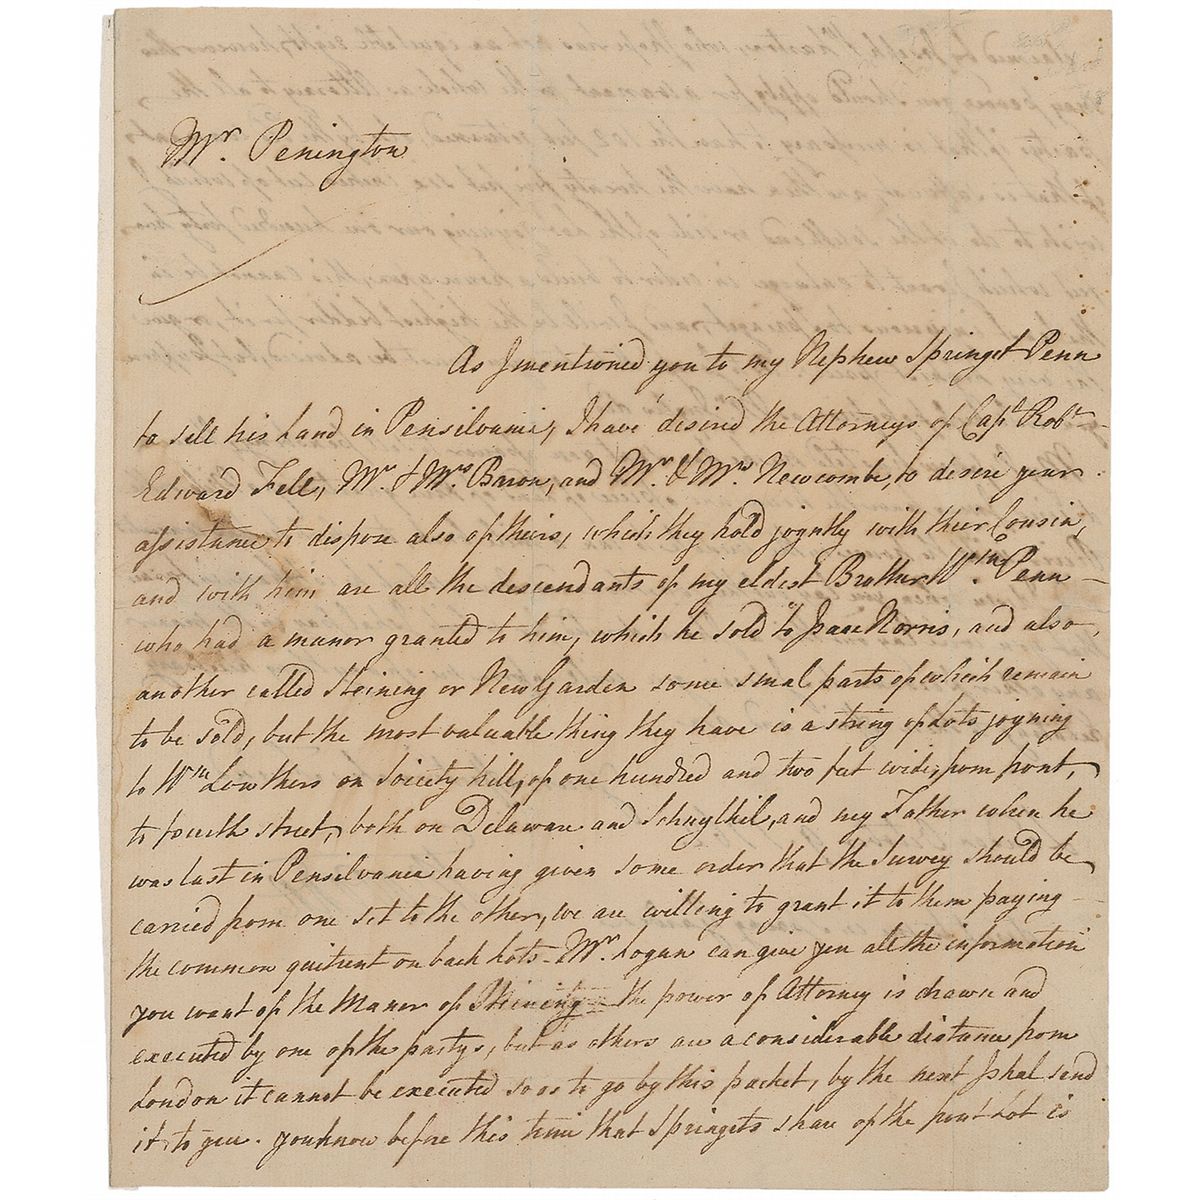 Mr. Penington
As I mentioned you to my Nephew Springet Penn
to sell his Land in Pensilvania, I have desired the Attorneys of Capt Robt
Edward Fell, Mr. & Mrs Baron, and Mr. & Mrs Newcombe, to desire your
assistance to dispose also of theirs, which they hold joyntly with their Cousin,
and with him are all the descendants of my eldest Brother Wm. Penn
who had a manor granted to him, which he sold to Isaac Norris, and also
another called Steining or New Garden some smal parts of which remain
to be sold, but the most valuable thing they have is a string of Lots joyning
to Wm Lowthers on Soicety hill, of one hundred and two feet wide, from front,
to fourth street, both on Delaware and Schuylkil, and my Father when he
was last in Pensilvania having given some order that the Survey should be
carried from one set to the other, we are willing to grant it to them paying
the common quitrent on back Lots - Mr. Logan can give you all the information
you want of the Manor of Steining - the power of Attorney is drawn and
executed by one of the partys, but as others are a considerable distance from
London it cannot be executed so as to go by this packet, by the next I shal send
it to you. you know before this time that Springets share of the front Lot is